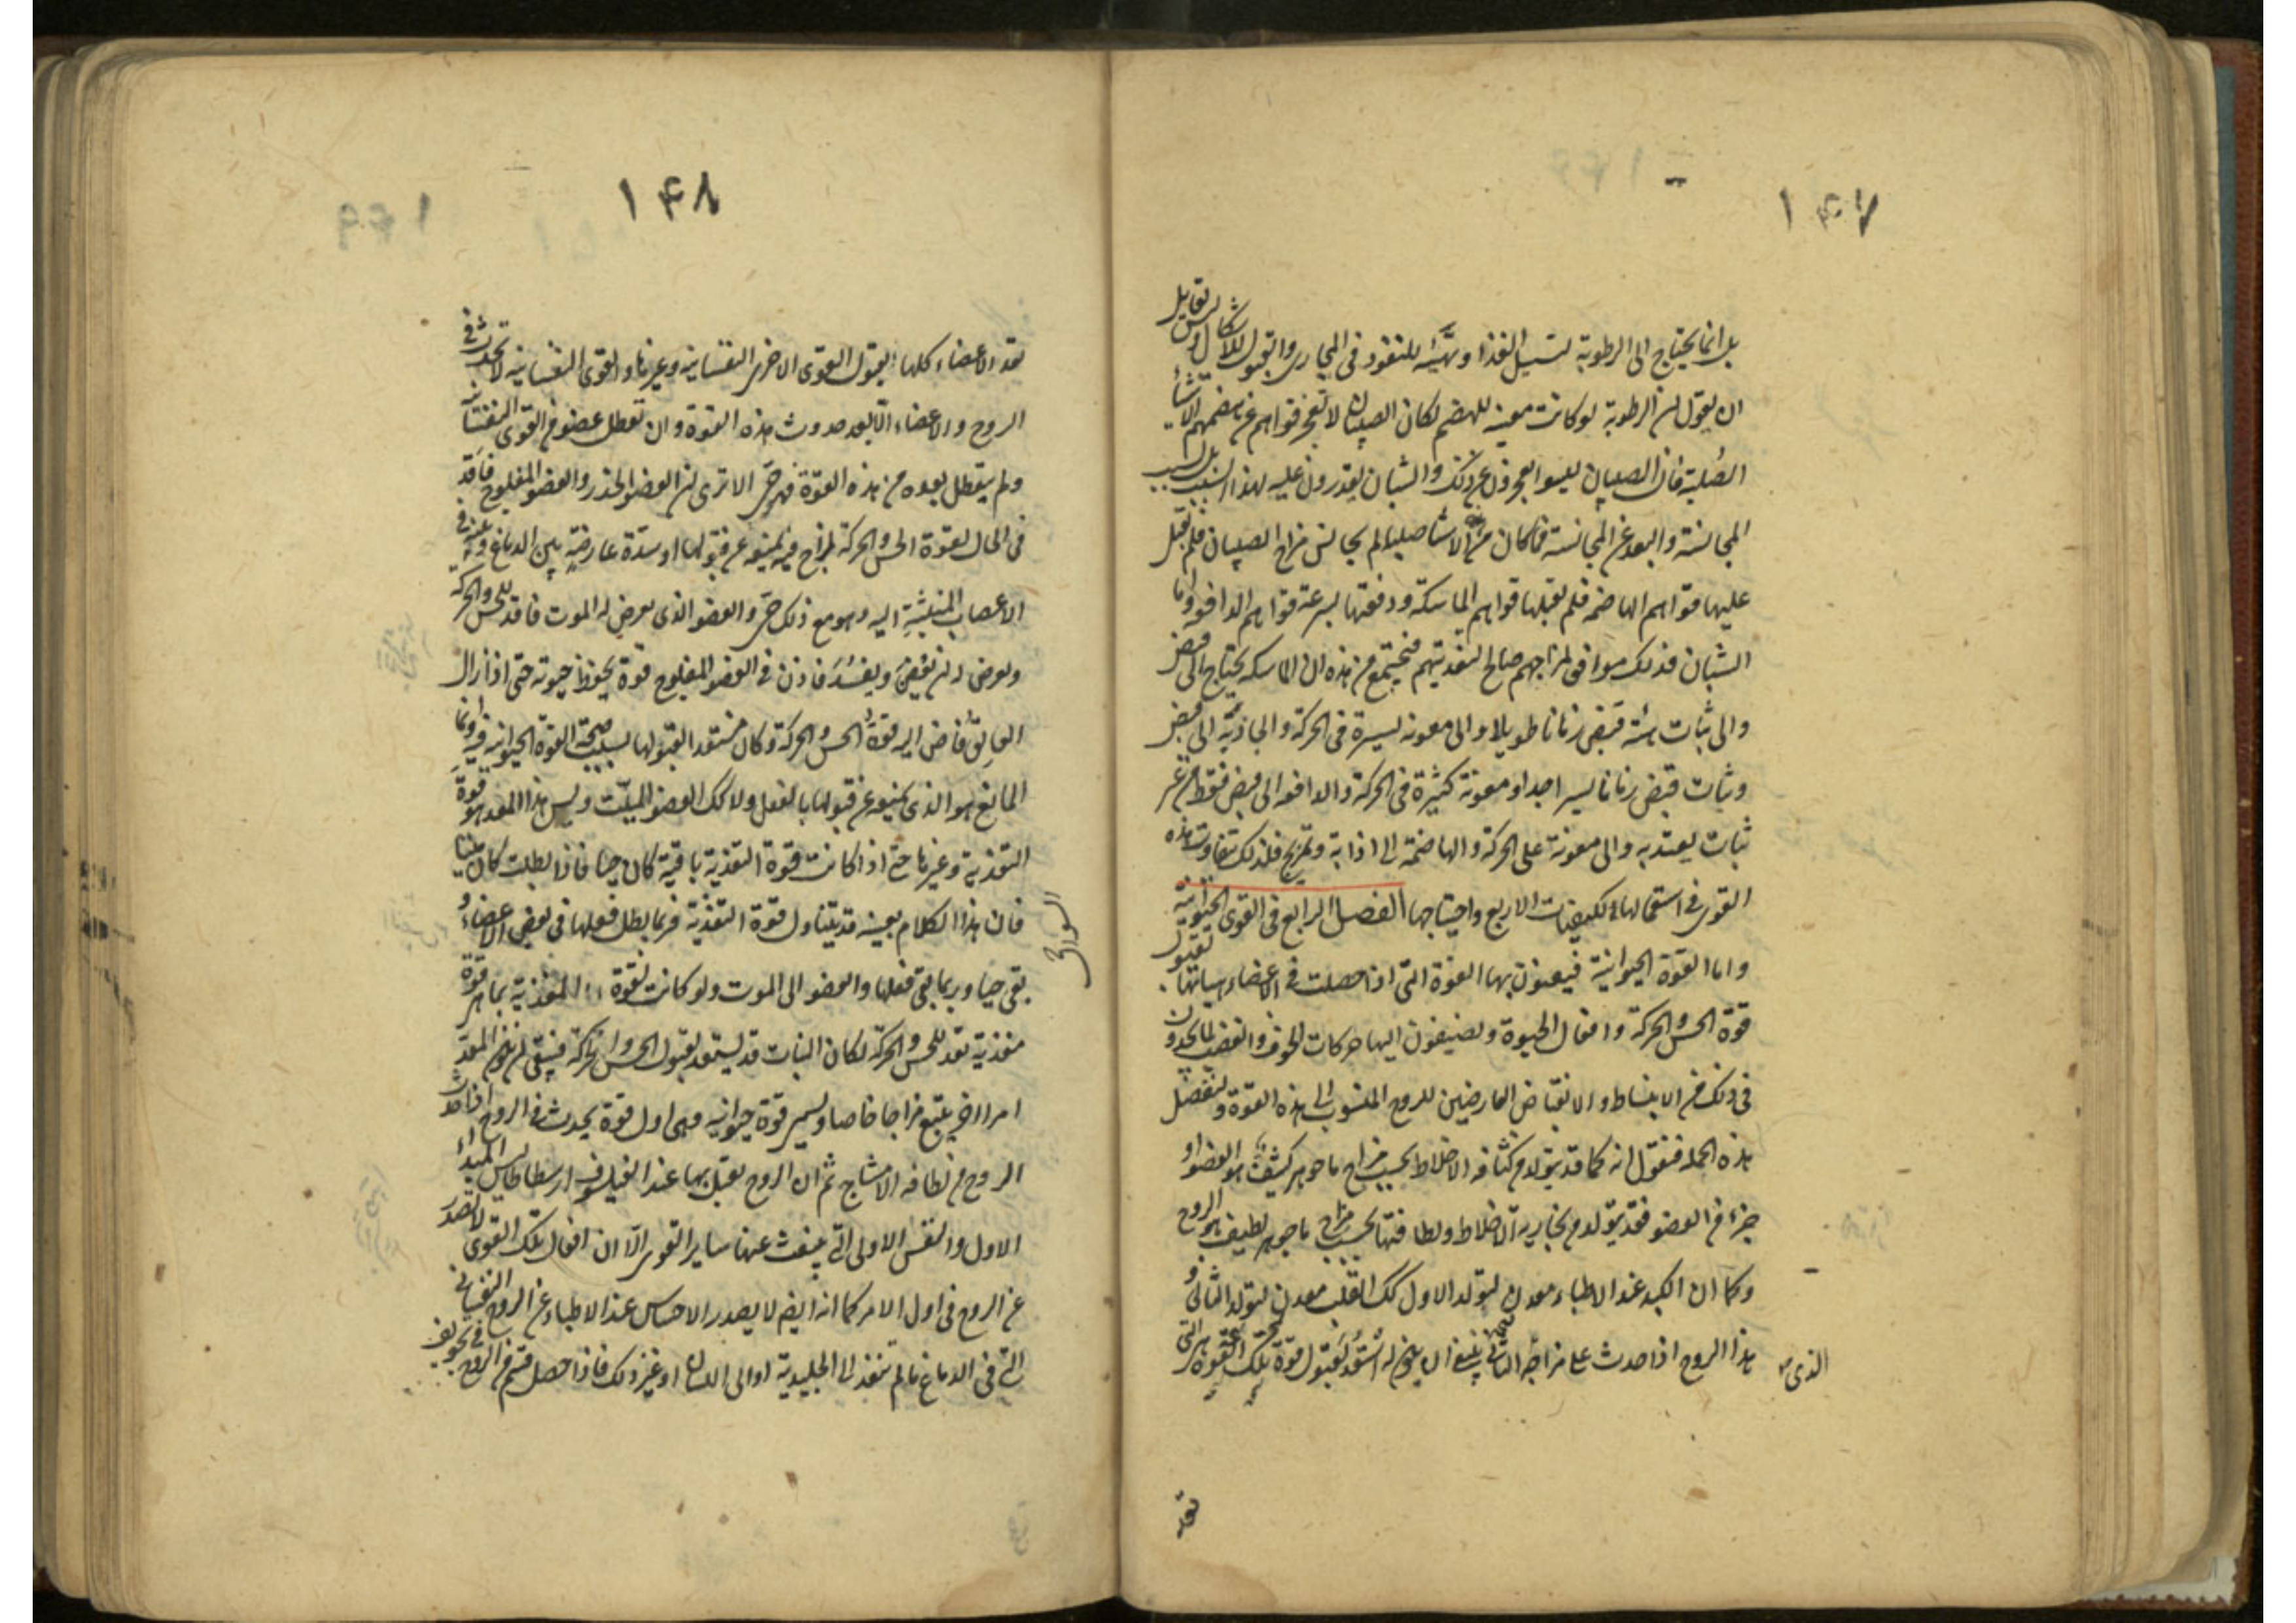 ١٤٧
بل انما يحتاج الى الرطوبة لتسييل الغذا وتهيئه للنفوذ فى المجارى والقبول للاشكال وليس لقايل
ان يقول ان الرطوبة لو كانت معينه للهضم لكان الصبيان لا تعجز قواهم عن هضمهم الاشيا
الصلبة فان الصبيان ليسوا يعجزون عن ذلك والشبان يقدرون عليه لهذا السبب بل لسبب
المجانسة والبعد عن المجانسة فما كان من الاشيا صلبا لم يجانس مزاج الصبيان فلم تقبل
عليها قواهم الهاضمه فلم تقبلها قواهم الماسكه ودفعتها بسرعة قواهم الدافعه واما
الشبان فذلك موافق لمزاجهم صالح لتغذيتهم فيجتمع من هذه ان الماسكه يحتاج الى قبض
والى ثبات هيئة قبض زمانا طويلا والى معونه يسيرة فى الحركة والجاذبة الى قبض
وثبات قبض زمانا يسيرا جدا ومعونة كثيرة فى الحركة والدافعه الى قبض فقط من غير
ثبات يعتد به والى معونة على الحركة والهاضمة الى اذابة وتمزيج فلذلك تتفاوت هذه
القوى فى استعمالها للكيفيات الاربع واحتياجها الفصل الرابع فى القوى الحيوانية
واما القوة الحيوانية فيعنون بها القوة التى اذا حصلت فى الاعضاء هياتها لقبول
قوة الحس والحركة وافعال الحيوة ويضيفون اليها حركات الخوف والغضب لما يجدون
فى ذلك من الانبساط والانقباض العارضين للروح المنسوب الى هذه القوة ولنفصل
هذه الجمله فنقول انه كما قد يتولد من كثافه الاخلاط بحسب مزاج ما جوهر كثيف هو العضو او
جزء من العضو فقد يتولد من بخاريه الاخلاط ولطافتها بحسب مزاج ما جوهر لطيف هو الروح
وكما ان الكبد عند الاطباء معدن لتولد الاول كك القلب معدن لتولد الثانى و
هذا الروح اذا حدث على مزاجه الذى ينبغى ان يكون له استعد لقبول قوة تلك القوة هى التى
الذى
تعد
١٤٨
تعد الاعضاء كلها لقبول القوى الاخرى النفسانية وغيرها والقوى النفسانيه لا تحدث فى
الروح والاعضاء الا بعد حدوث هذه القوة وان تعطل عضو من القوى النفسانيه
ولم يتعطل بعد من هذه القوة فهو حى الا ترى ان العضو الخدر والعضو المفلوج فاقد
فى الحال لقوة الحس والحركة لمزاج فيه يمنعه عن قبولها او سدة عارضة بين الدماغ وبينه فى
الاعصاب المنبثة اليه وهو مع ذلك حى والعضو الذى يعرض له الموت فاقد للحس والحركه
ويعرض له ان يعفن ويفسد فاذن فى العضو المفلوج قوة تحفظ حيوته حتى اذا زال
العايق فاض اليه قوة الحس والحركة وكان مستعدا لقبولها بسبب صحة القوة الحيوانيه فيه وانما
المانع هو الذى يمنعه عن قبولها بالفعل ولا كك العضو الميت وليس هذا المعد هو قوة
التغذية وغيرها حتى اذا كانت قوة التغذية باقية كان حيا فاذا بطلت كان ميتا
فان هذا الكلام بعينه قد يتناول قوة التغذية فربما بطل فعلها فى بعض الاعضاء و
بقى حيا وربما بقى فعلها والعضو الى الموت ولو كانت القوة المغذية بما هى قوة
مغذية تعد للحس والحركة لكان النبات قد يستعد لقبول الحس والحركة فيبقى ان يكون المعد
امرا اخر يتبع مزاجا خاصا ويسمى قوة حيوانيه وهى اول قوة يحدث فى الروح اذا حدث
الروح من لطافه الامشاج ثم ان الروح تقبل بها عند الفيلسوف ارسطاطاليس المبداء
الاول والنفس الاولى التى ينبعث عنها ساير القوى الا ان افعال تلك القوى لا تصدر
عن الروح فى اول الامر كما انه ايضا لا يصدر الاحساس عند الاطباء عن الروح النفسانى
التى فى الدماغ ما لم تنفذ الى الجليدية او الى اللسان او غير ذلك فاذا حصل قسم من الروح فى تجويف